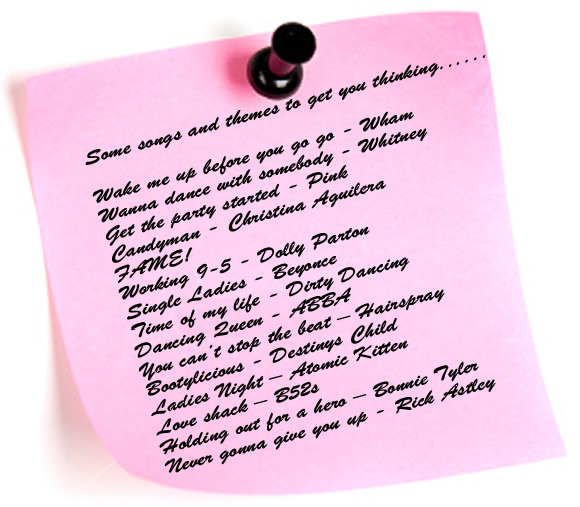 Some songs and themes to get you thinking......
Wake me up before you go go - Wham
Wanna dance with somebody - Whitney
Get the party started - Pink
Candyman - Christina Aguilera
FAME!
Working 9-5 - Dolly Parton
Single Ladies - Beyonce
Time of my life - Dirty Dancing
Dancing Queen - ABBA
You can't stop the beat – Hairspray
Bootylicious - Destinys Child
Ladies Night – Atomic Kitten
Love shack – B52s
Holding out for a hero – Bonnie Tyler
Never gonna give you up - Rick Astley